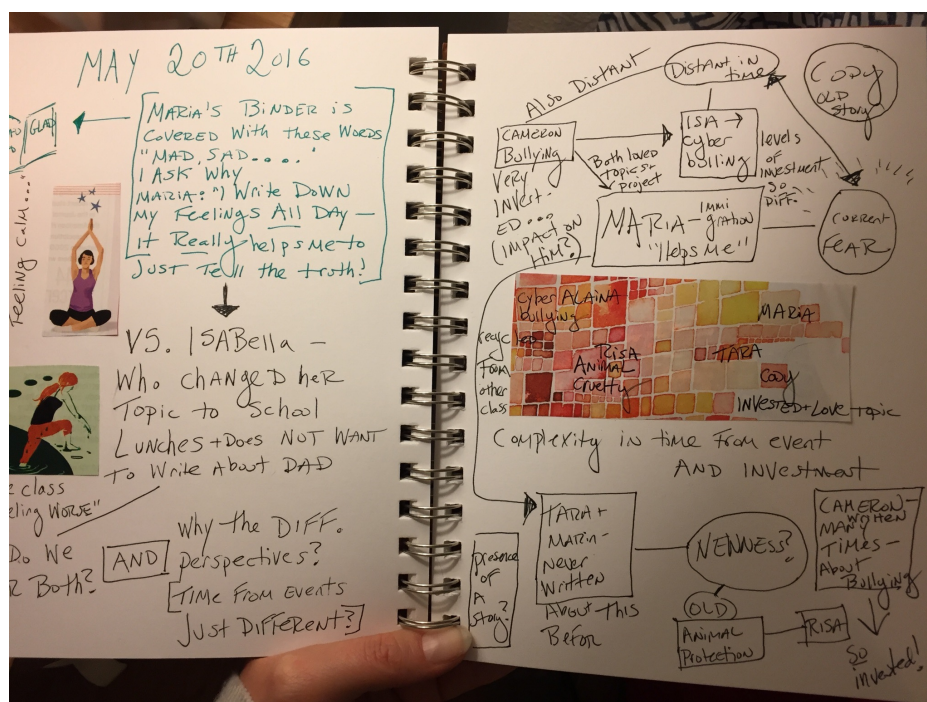 MAY 20TH 2016
GLAD
MARIA'S BINDER is
COVERED With these WORDS
"MAD, SAD....."
I ASK Why
MARIA: "I Write DOWN
My Feelings All DAy —
it Really helps me to
Just Tell the truth!
Feeling CALM..."
VS. ISABella —
Who changed her
Topic to School
Lunches + Does NOT WANT
To Write About DAD
class
eling WORSE"
Do We
Both?
AND
Why the DIFF.
perspectives?
[TIME From Events
Just DIFFERENT?]
Also DISTANT
DISTANT in
time
CODY
OLD
Story
CAMERON
Bullying
Very
Invest-
ED...
(IMPACT ON
Him?)
Both loved
topics +
project
ISA →
Cyber
bulling
levels
OF
investment
So
DIFF.
MARIA – IMMI
gration
"Helps Me"
CURRENT
FEAR
Cyber ALAINA
bullying
MARIA
RISA
ANIMAL
Cruelty
TARA
CODY
INVESTED + Love topic
recycled
from
other
class
Complexity in time From event
AND INVestment
TARA +
MARIA –
Never
Written
About this
Befor
presence
OF
A
Story?
NEWNESS?
OLD
ANIMAL
Protection
RISA
CAMERON –
Written
MANY
Times –
About
Bullying
So
invested!